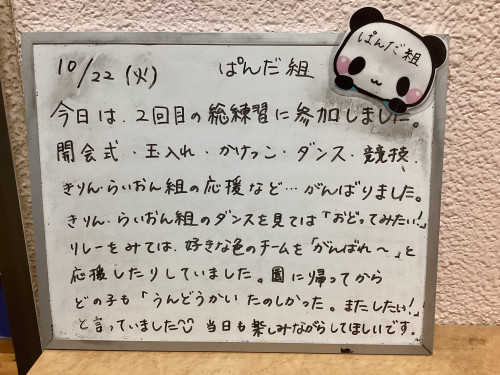 10/22 (火) ぱんだ組
ぱんだ組
今日は、2回目の総練習に参加しました。
開会式・玉入れ・かけっこ・ダンス・競技、
きりん・らいおん組の応援など…がんばりました。
きりん・らいおん組のダンスを見ては「おどってみたい!」
リレーをみては、好きな色のチームを「がんばれ〜」と
応援したりしていました。園に帰ってから
どの子も「うんどうかい たのしかった。またしたい!」
と言っていました^^ 当日も楽しみながらしてほしいです。